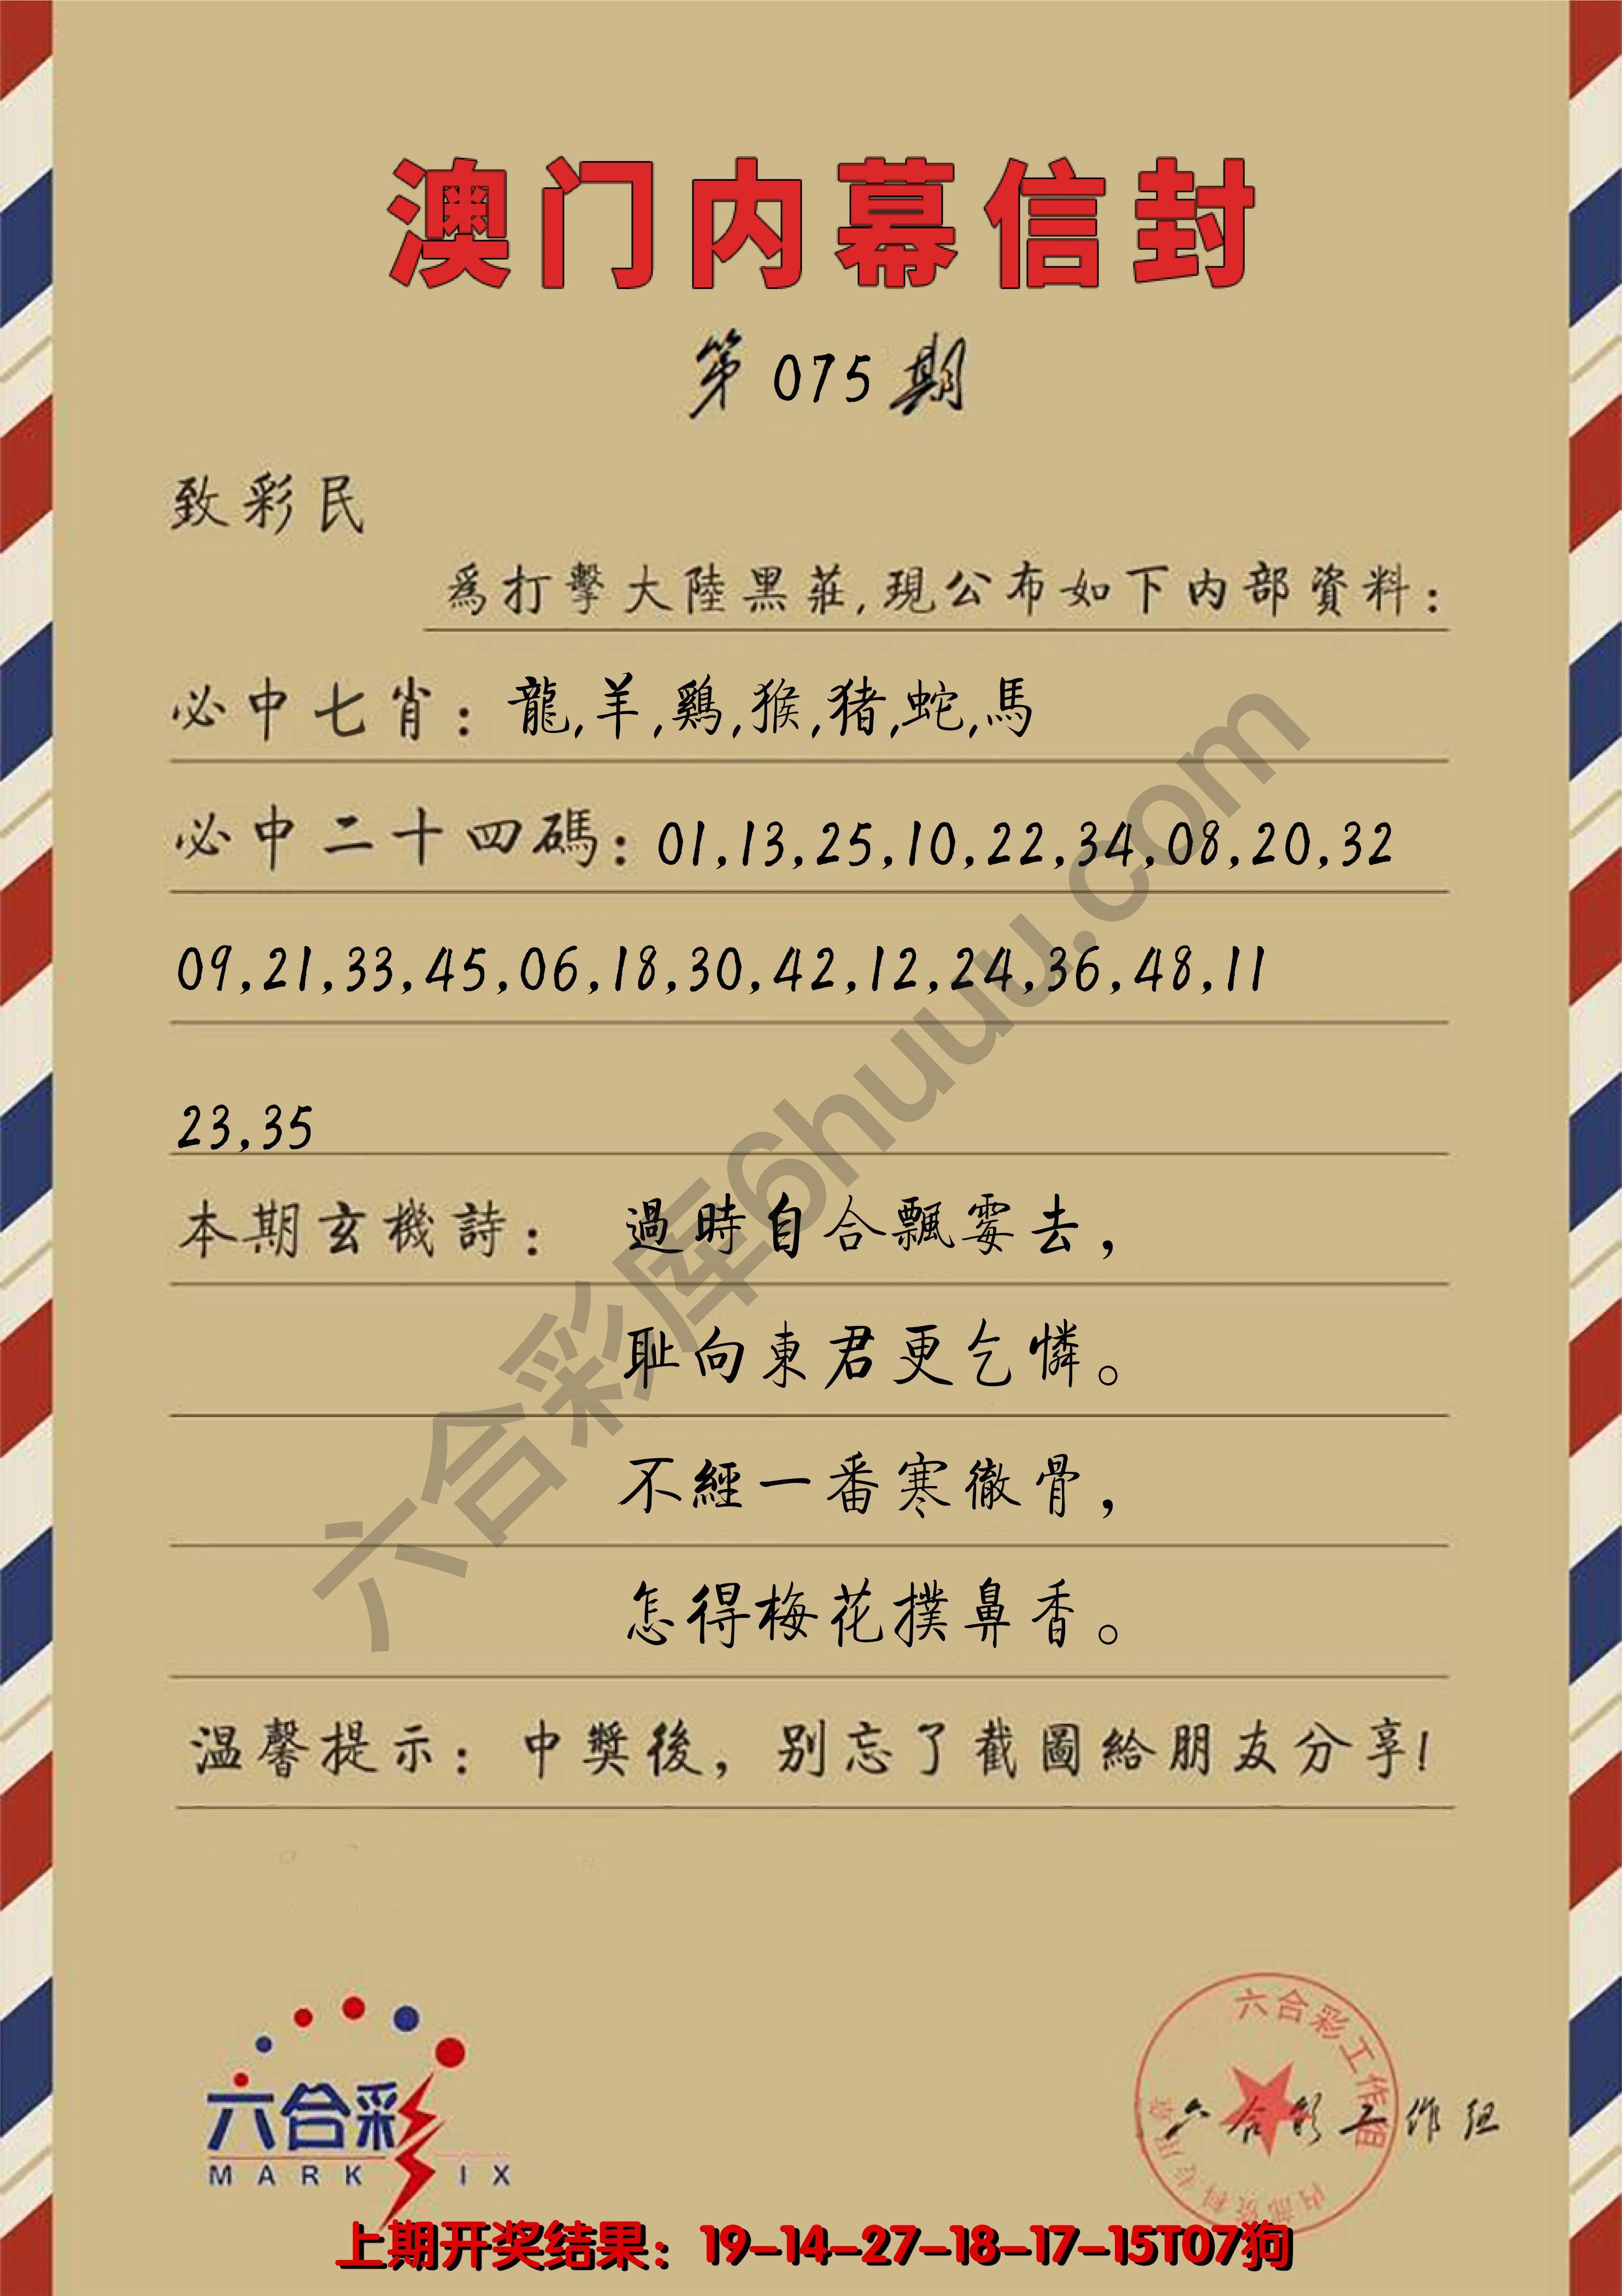 澳门内幕信封
第075期
致彩民
爲打擊大陸黑莊,現公布如下内部資料：
必中七肖：龍,羊,鷄,猴,猪,蛇,馬
必中二十四碼：01,13,25,10,22,34,08,20,32
09,21,33,45,06,18,30,42,12,24,36,48,11
23,35
本期玄機詩：過時自合飄零去，
耻向東君更乞憐。
不經一番寒徹骨，
怎得梅花撲鼻香。
温馨提示：中獎後，别忘了截圖給朋友分享!
六合彩库6huuu.com
六合彩
MARK IX
六合彩工作组
内部资料专用章
六合彩工作组
上期开奖结果：19-14-27-18-17-15T07狗